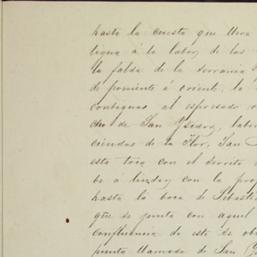 hasta la cuesta que lleva
ligua á la labor de las
la falda de la serranía
de poniente á oriente, la
contiguas al espresado
cho de San Ysidro, labor
ciendas de la Flor, San
esta toca con el
be á lindar con la pro
hasta la boca de Sebasti
que se junta con aquel
confluencia de este de ob
punto llamado de San